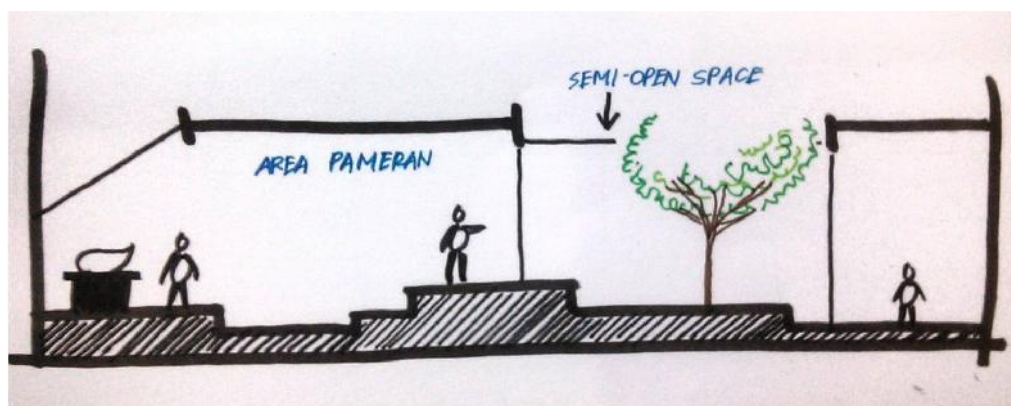 SEMI-OPEN SPACE
AREA PAMERAN